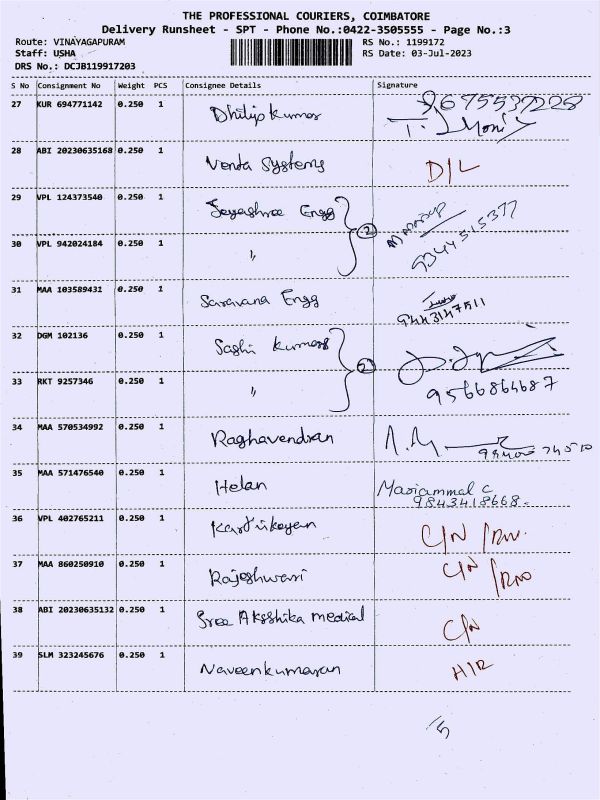 THE PROFESSIONAL COURIERS, COIMBATORE
Delivery Runsheet - SPT - Phone No.:0422-3505555 - Page No.:3
Route: VINAYAGAPURAM RS No.: 1199172
Staff: USHA RS Date: 03-Jul-2023
DRS No.: DCJB119917203
S No Consignment No Weight PCS Consignee Details Signature
27 KUR 694771142 0.250 1 Dhilipkumar 9675537228
28 ABI 20230635168 0.250 1 Venta Systems D/L
29 VPL 124373540 0.250 1 Jeyashree Engg 2 9344515377
30 VPL 942024184 0.250 1 "
31 MAA 103589431 0.250 1 Saravana Engg 9443147511
32 DGM 102136 0.250 1 Sashi Kumar 2
33 RKT 9257346 0.250 1 " 9566864687
34 MAA 570534992 0.250 1 Raghavendran
35 MAA 571476540 0.250 1 Helan Mariammal C
9843418668.
36 VPL 402765211 0.250 1 Karthikeyan C/N /RNO
37 MAA 860250910 0.250 1 Rajeshwari C/N /RNO
38 ABI 20230635132 0.250 1 Sree Aksshika medical C/N
39 SLM 323245676 0.250 1 Naveenkumaran H/R
/5